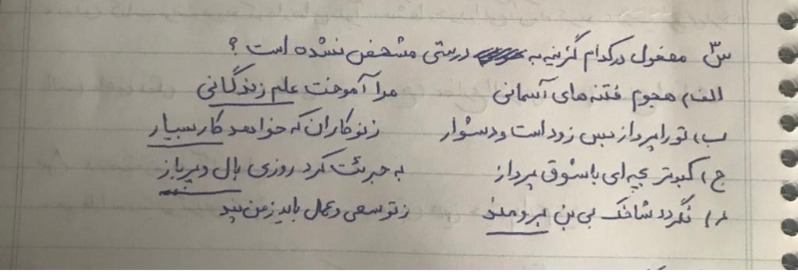 س۳ مفعول در کدام گزینه به درستی مشخص نشده است؟
الف) هجوم فتنه های آسمانی مرا آموخت علم زندگانی
ب) تو را پرواز بس زود است و دشوار ز نوکاران که خواهد کار بسیار
ج) کبوتر بچه ای با شوق پرواز به جرئت کرد روزی بال و پر باز
د) نگردد شاخک بی بن برومند ز تو سعی و عمل باید ز من پند